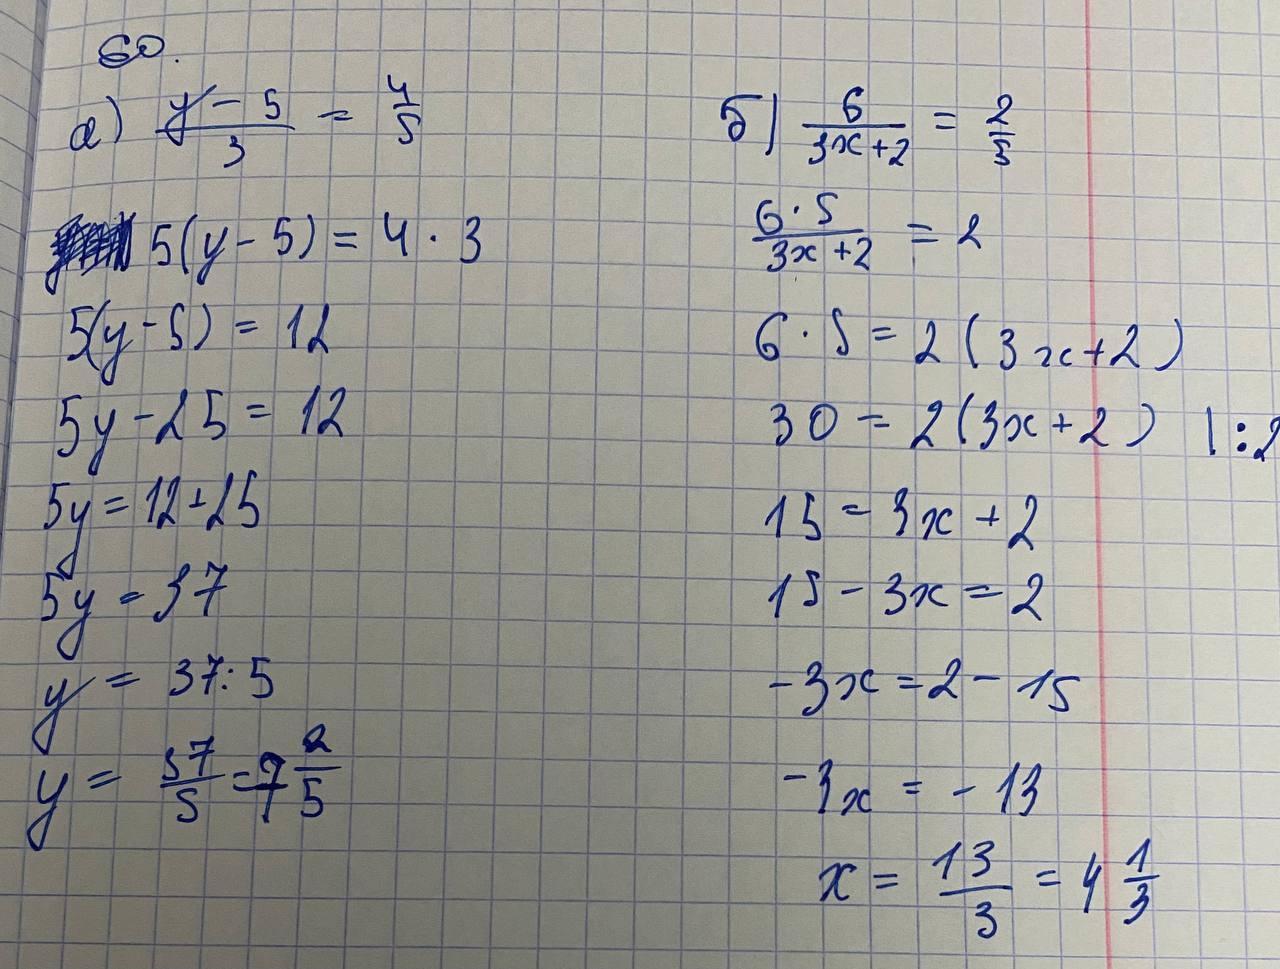 60.
а) (y - 5)/3 = 4/5
5(y - 5) = 4 · 3
5(y - 5) = 12
5y - 25 = 12
5y = 12 + 25
5y = 37
y = 37 : 5
y = 37/5 = 7 2/5
б) 6/(3x + 2) = 2/5
(6 · 5)/(3x + 2) = 2
6 · 5 = 2 (3x + 2)
30 = 2 (3x + 2) | : 2
15 = 3x + 2
15 - 3x = 2
-3x = 2 - 15
-3x = -13
x = 13/3 = 4 1/3